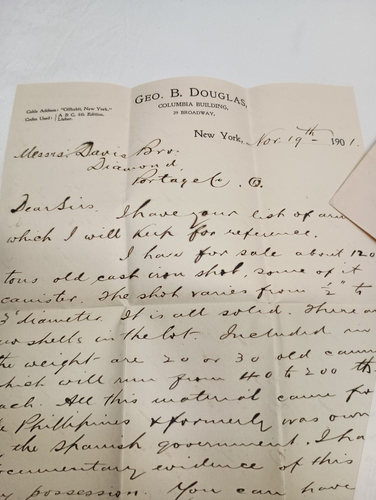 GEO. B. DOUGLAS,
COLUMBIA BUILDING,
29 BROADWAY,
Cable Address: "Offsaltt, New York."
Codes Used: A B C 4th Edition.
Lieber.
New York, Nov. 19th - 1901.
Messrs. Davis Bro.
Diamond,
Portage Co. O.
Dear Sirs. I have your list of arm
which I will keep for reference.
I have for sale about 120
tons old cast iron shot, some of it
canister. The shot varies from ½" to
3" diameter. It is all solid. There ar
no shells in the lot. Included in
the weight are 20 or 30 old cann
which will run from 40 to 200 lbs
ach. All this material came fro
e Phillipines & formerly was own
y the Spanish government. I ha
ocumentary evidence of this
y possession. You can have